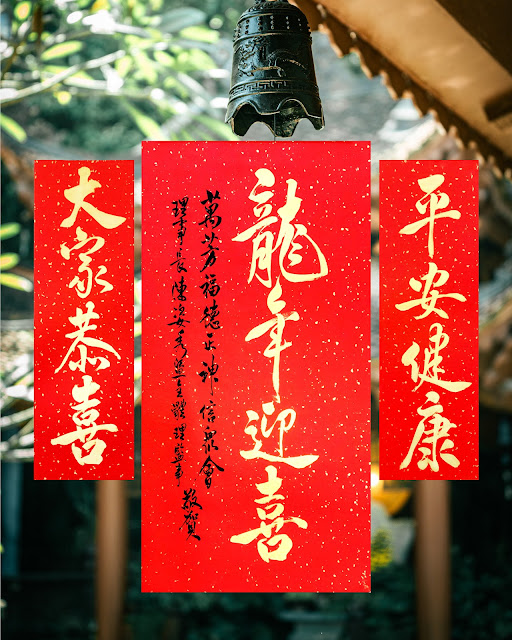 平安健康
龍年迎喜
萬芳福德正神信眾會
理事長陳姿暨全體理監事
敬賀
大家恭喜